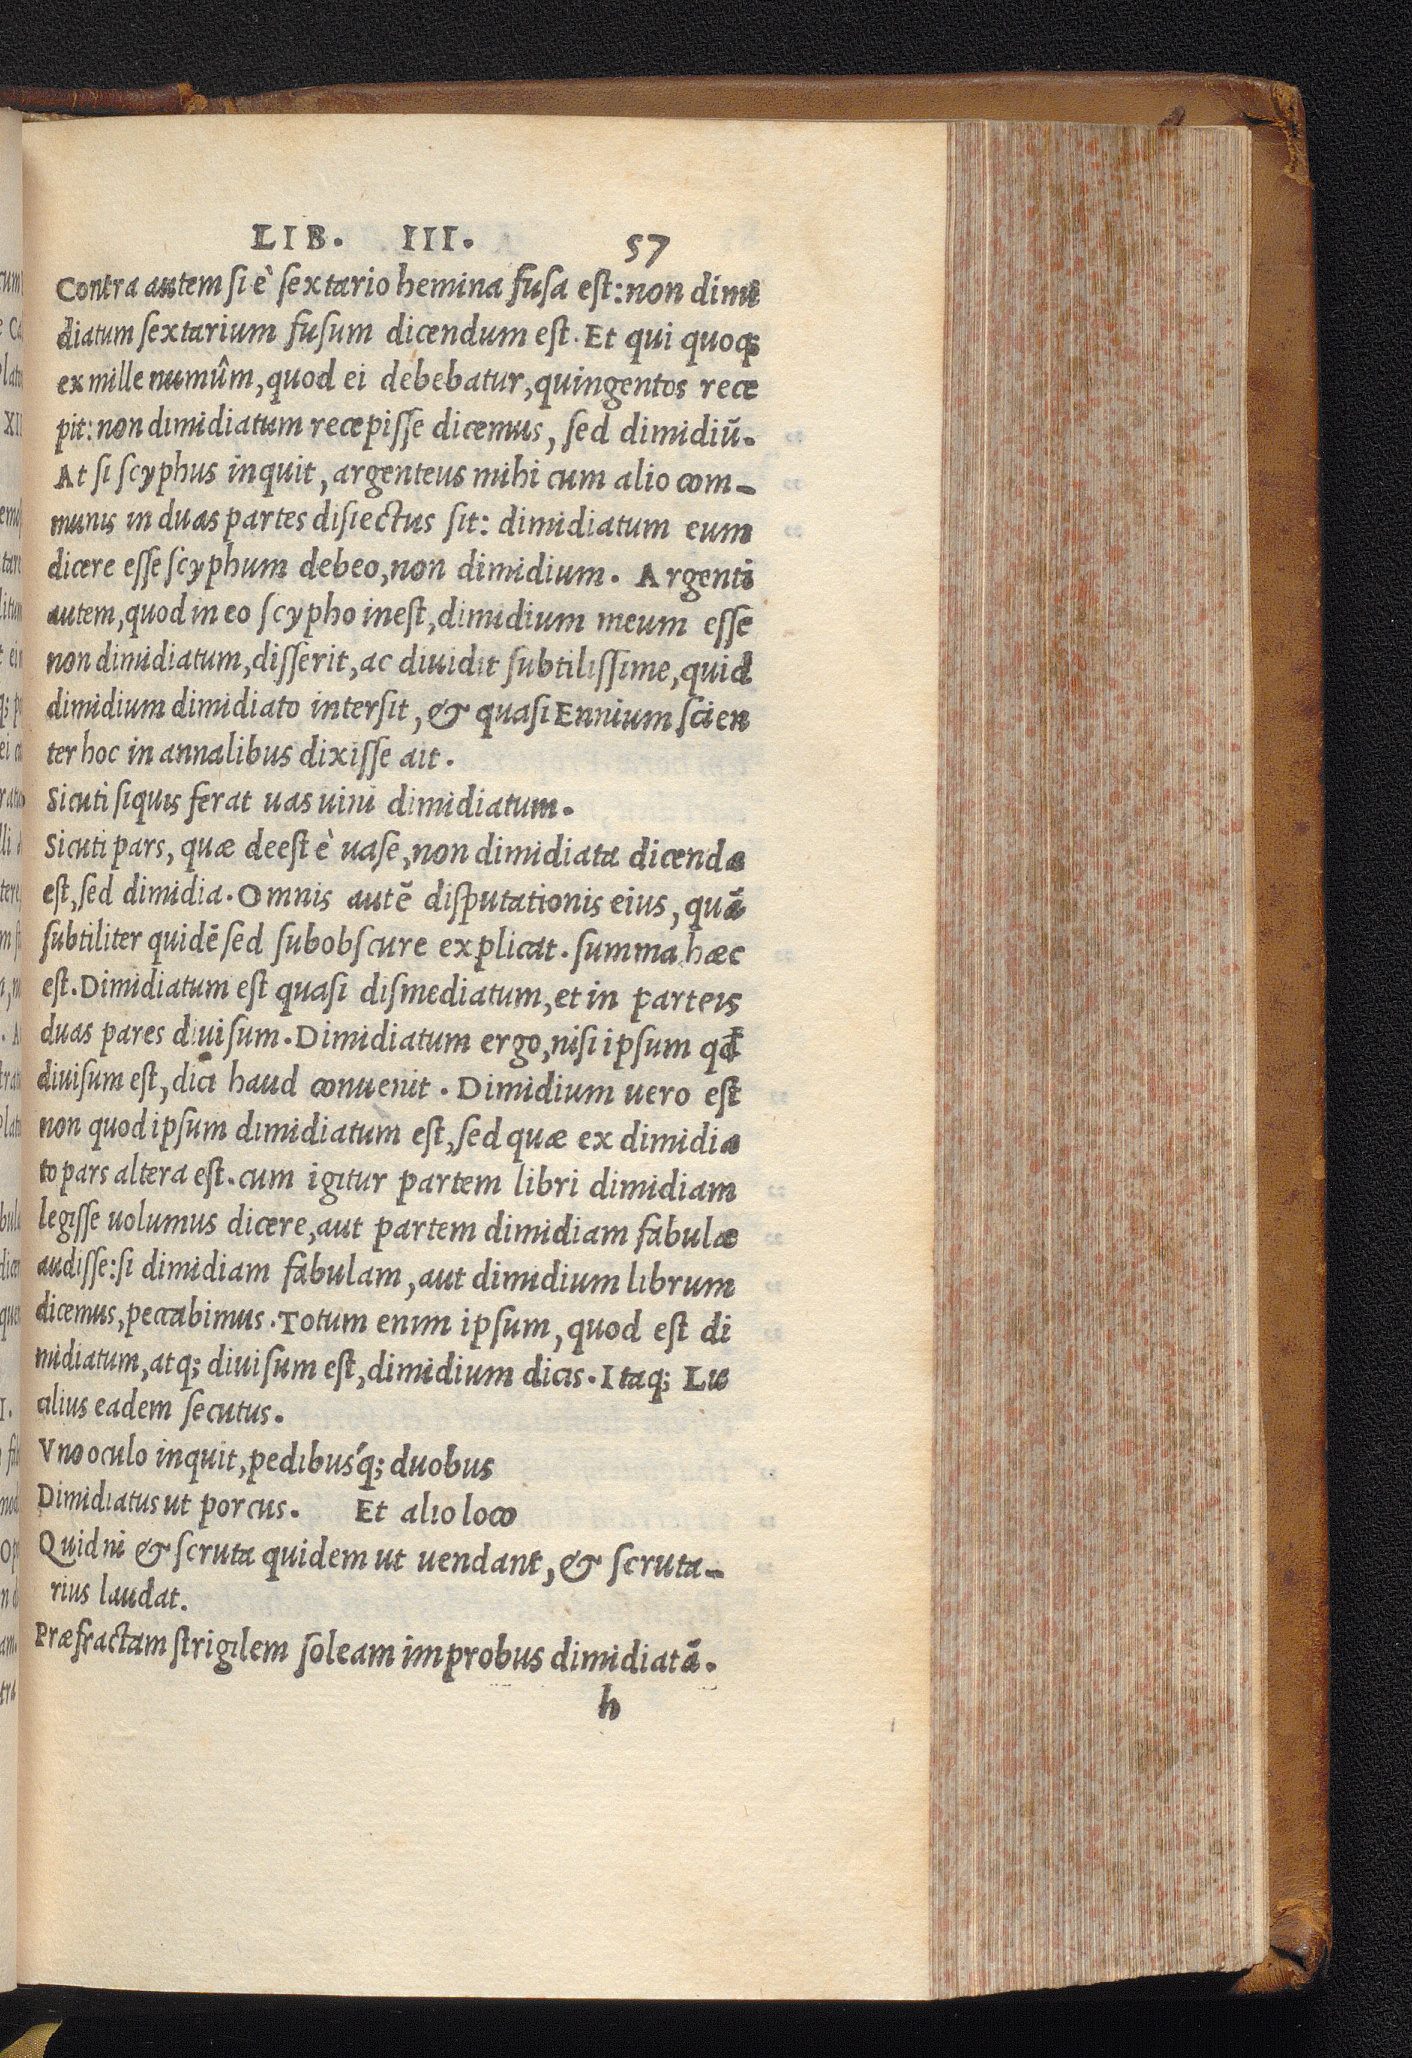 LIB. III. 57
Contra autem si è sextario hemina fusa est: non dimi
diatum sextarium fusum dicendum est. Et qui quoq;
ex mille numûm, quod ei debebatur, quingentos rece
pit: non dimidiatum recepisse dicemus, sed dimidiū.
At si scyphus inquit, argenteus mihi cum alio com-
munis in duas partes disiectus sit: dimidiatum eum
dicere esse scyphum debeo, non dimidium. Argenti
autem, quod in eo scypho inest, dimidium meum esse
non dimidiatum, disserit, ac diuidit subtilissime, quid
dimidium dimidiato intersit, & quasi Ennium scien
ter hoc in annalibus dixisse ait.
Sicuti siquis ferat uas uini dimidiatum.
Sicuti pars, quæ deest è uase, non dimidiata dicenda
est, sed dimidia. Omnis autē disputationis eius, quā
subtiliter quidē sed subobscure explicat. summa hæc
est. Dimidiatum est quasi dismediatum, et in parteis
duas pares diuisum. Dimidiatum ergo, nisi ipsum qđ
diuisum est, dici haud conuenit. Dimidium uero est
non quod ipsum dimidiatum est, sed quæ ex dimidia
to pars altera est. cum igitur partem libri dimidiam
legisse uolumus dicere, aut partem dimidiam fabulæ
audisse: si dimidiam fabulam, aut dimidium librum
dicemus, peccabimus. Totum enim ipsum, quod est di
midiatum, atq; diuisum est, dimidium dicis. Itaq; Lu
cilius eadem secutus.
Vno oculo inquit, pedibus´q; duobus
Dimidiatus ut porcus. Et alio loco
Quidni & scruta quidem ut uendant, & scruta-
rius laudat.
Præfractam strigilem soleam improbus dimidiatā.
h